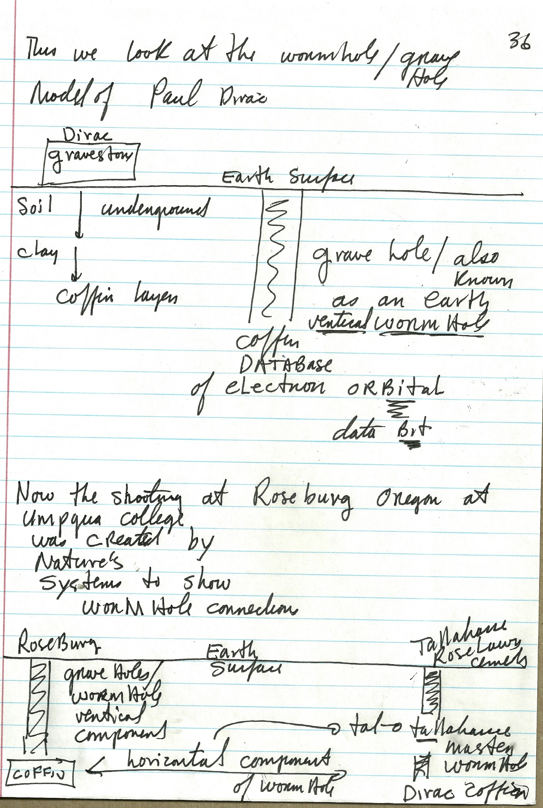 36
Thus we look at the wormhole/grave
Hole
Model of Paul Dirac
Dirac
gravestone
Earth Surface
Soil underground
clay
coffin layers
grave hole/also
known
as an earth
vertical worm Hole
coffin
DATABase
of electron ORBital
data Bit
Now the shooting at Roseburg Oregon at
Umpqua college
was created by
Nature's
Systems to show
worM Hole connection
RoseBurg
Earth
Surface
Tallahassee
RoseLawn
cemets
grave Holes/
worm Hole
vertical
component
tal-o tallahassee
master
worm Hol
horizontal component
of worm Hole
COFFIN
Dirac coffin